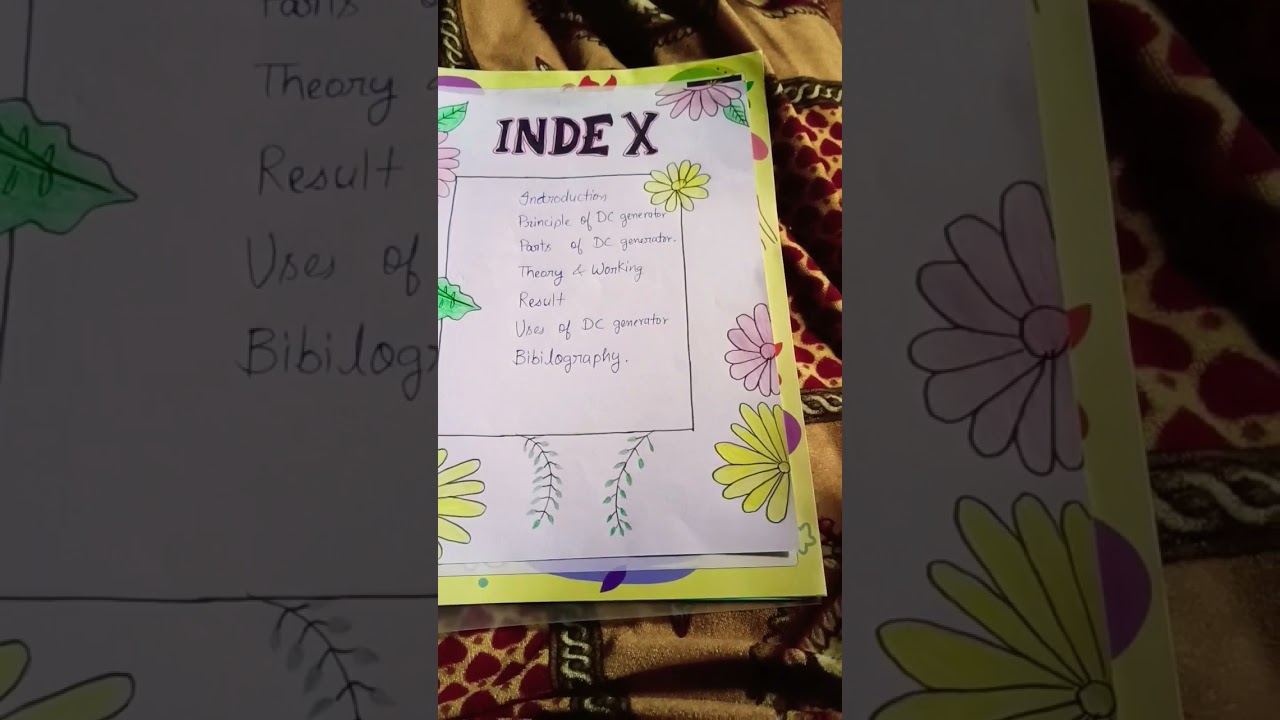 INDEX
Introduction
Principle of DC generator
Parts of DC generator.
Theory & Working
Result
Uses of DC generator
Bibilography.